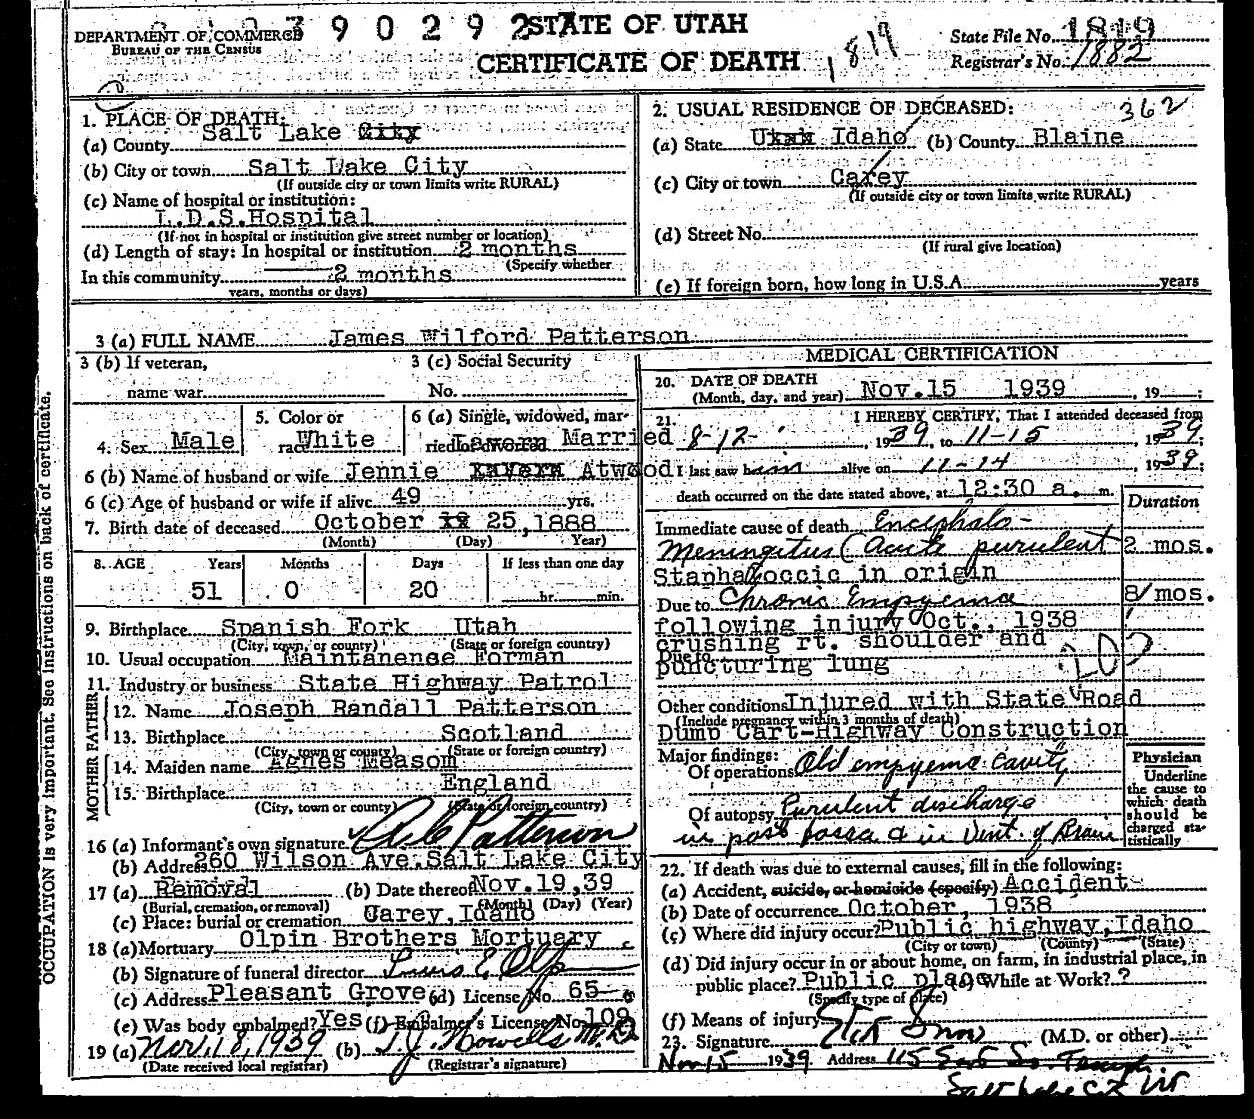 DEPARTMENT OF COMMERCE
BUREAU OF THE CENSUS
3 9 0 2 9 2
STATE OF UTAH
CERTIFICATE OF DEATH
1819
State File No. 1819
Registrar's No. 1882
362
1. PLACE OF DEATH:
(a) County Salt Lake City
(b) City or town Salt Lake City
(If outside city or town limits write RURAL)
(c) Name of hospital or institution:
L.D.S.Hospital
(If not in hospital or institution give street number or location)
(d) Length of stay: In hospital or institution 2 months
(Specify whether
In this community 2 months
years, months or days)
2. USUAL RESIDENCE OF DECEASED:
(a) State Utah Idaho (b) County Blaine
(c) City or town Carey
(If outside city or town limits, write RURAL)
(d) Street No.
(If rural give location)
(e) If foreign born, how long in U.S.A. years
3 (a) FULL NAME James Wilford Patterson
3 (b) If veteran,
name war
3 (c) Social Security
No.
4. Sex Male
5. Color or
race White
6 (a) Single, widowed, mar-
ried or divorced Married
6 (b) Name of husband or wife Jennie Lavern Atwood
6 (c) Age of husband or wife if alive 49 yrs.
7. Birth date of deceased October 25, 1888
(Month) (Day) Year)
8. AGE Years Months Days If less than one day
51 0 20 hr. min.
9. Birthplace Spanish Fork Utah
(City, town, or county) (State or foreign country)
10. Usual occupation Maintanense Forman
11. Industry or business State Highway Patrol
FATHER
12. Name Joseph Randall Patterson
13. Birthplace Scotland
(City, town or county) (State or foreign country)
MOTHER
14. Maiden name Agnes Measom
15. Birthplace England
(City, town or county) (State or foreign country)
16 (a) Informant's own signature Patterson
(b) Address 260 Wilson Ave. Salt Lake City
17 (a) Removal (b) Date thereof Nov.19,39
(Burial, cremation, or removal) (Month) (Day) (Year)
(c) Place: burial or cremation Carey, Idaho
18 (a) Mortuary Olpin Brothers Mortuary
(b) Signature of funeral director
(c) Address Pleasant Grove (d) License No. 65
(e) Was body embalmed? Yes (f) Embalmer's License No. 109
19 (a) Nov, 18, 1939 (b) T. J. Howells M.D.
(Date received local registrar) (Registrar's signature)
MEDICAL CERTIFICATION
20. DATE OF DEATH
(Month, day, and year) Nov.15 1939, 19
21. I HEREBY CERTIFY, That I attended deceased from
8-12- 1939, to 11-15, 1939;
I last saw him alive on 11-14, 1939;
death occurred on the date stated above, at 12:30 a. m.
Duration
Immediate cause of death Encephalo-
Meningitus (Acute purulent 2 mos.
Staphaloccic in origin
Due to Chronic Empyema 8 mos.
following injury Oct., 1938
crushing rt. shoulder and
Due to
puncturing lung
Other conditions Injured with State Road
(Include pregnancy within 3 months of death)
Dump Cart-Highway Construction
Major findings:
Of operations Old empyema cavity
Of autopsy Purulent discharge
in post fossa & in Vent. of Brain
Physician
Underline
the cause to
which death
should be
charged sta-
tistically
22. If death was due to external causes, fill in the following:
(a) Accident, suicide, or homicide (specify) Accident
(b) Date of occurrence October, 1938
(c) Where did injury occur? Public highway, Idaho
(City or town) (County) (State)
(d) Did injury occur in or about home, on farm, in industrial place, in
public place? Public place While at Work? ?
(Specify type of place)
(f) Means of injury
23. Signature (M.D. or other)
Nov 15 1939 Address 115 East So. Temple
Salt Lake City Ut
OCCUPATION is very important. See instructions on back of certificate.